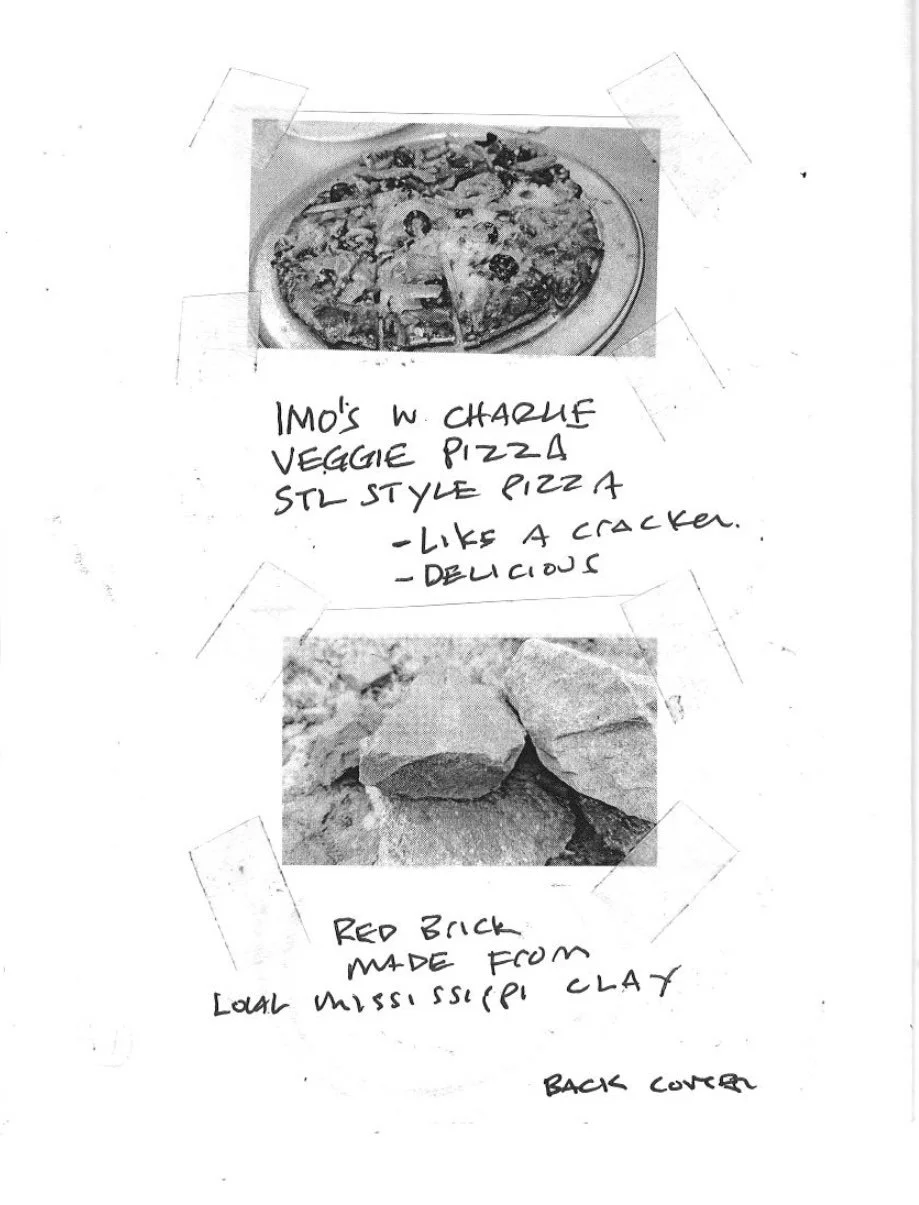 IMO'S W. CHARLIE
VEGGIE PIZZA
STL STYLE PIZZA
- LIKE A CRACKER.
- DELICIOUS
RED BRICK
MADE FROM
LOCAL MISSISSIPPI CLAY
BACK COVER